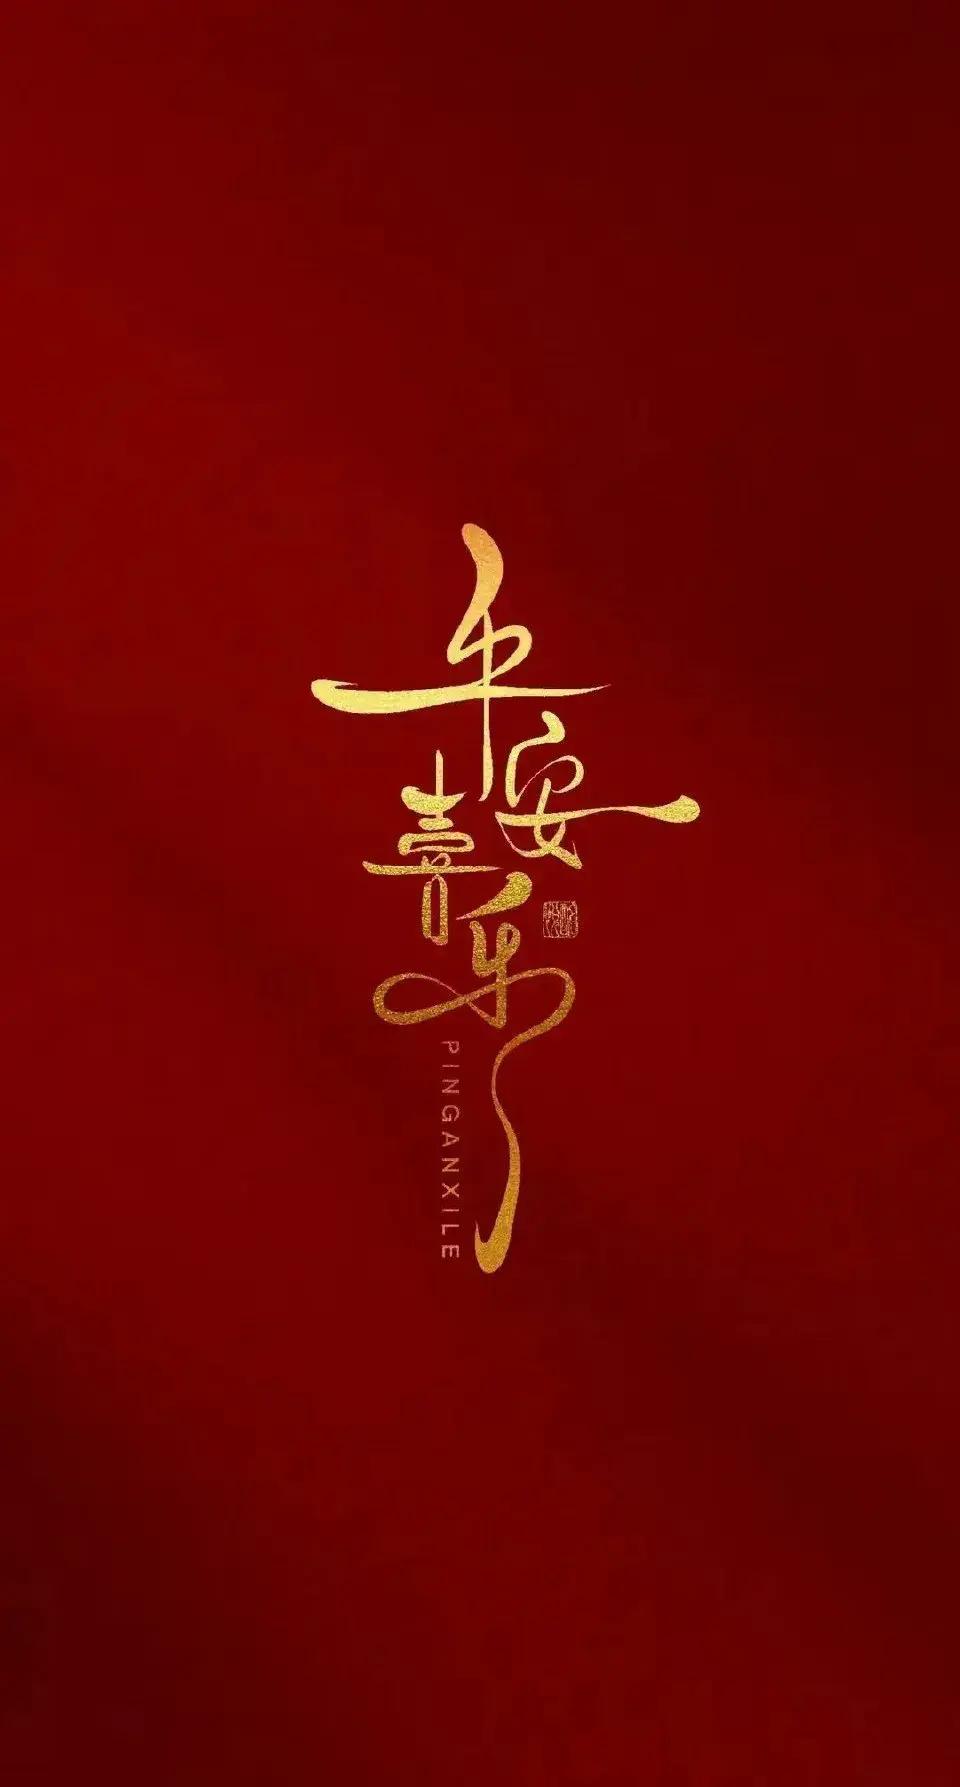 平安
喜乐
PINGANXILE